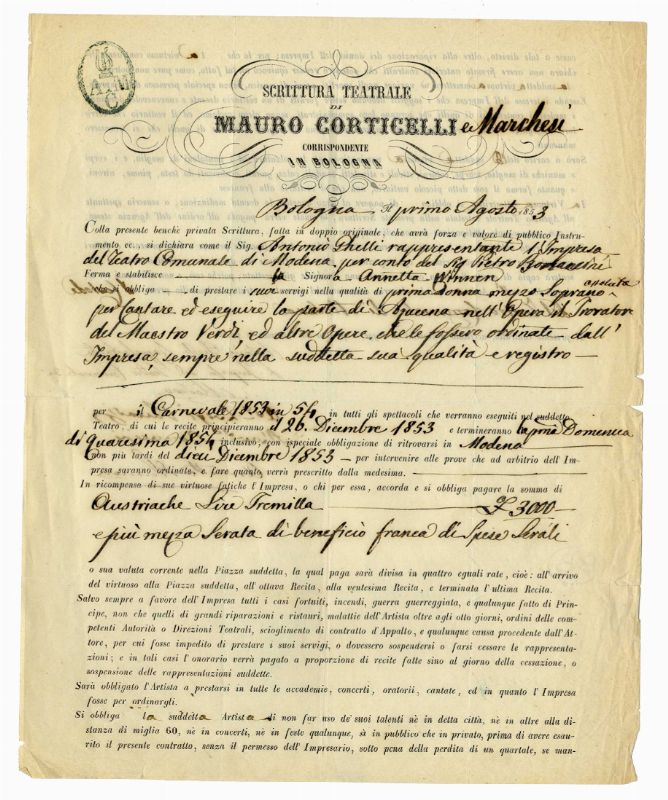 A M
C
SCRITTURA TEATRALE
DI
MAURO CORTICELLI e Marchesi
CORRISPONDENTE
IN BOLOGNA
Bologna il primo Agosto 1853
Colla presente benchè privata Scrittura, fatta in doppio originale, che avrà forza e valore di pubblico Instru-
mento ec., si dichiara come il Sig. Antonio Ghelli rappresentante l'Impresa
del Teatro Comunale di Modena per conto del Sig Pietro
Ferma e stabilisce la Signora Annetta Winnen
che si obbliga di prestare i suoi servigj nella qualità di prima donna mezzo Soprano assoluta
per Cantare ed eseguire la parte di Azucena nell'Opera il Trovatore
del Maestro Verdi, ed altre Opere che le fossero ordinate dall'
Impresa, sempre nella suddetta sua qualità e registro
per il Carnevale 1853 in 54 in tutti gli spettacoli che verranno eseguiti nel suddetto
Teatro, di cui le recite principieranno il 26. Dicembre 1853 e termineranno la pma Domenica
di Quaresima 1854 inclusive, con ispeciale obbligazione di ritrovarsi in Modena
non più tardi del dieci Dicembre 1853 per intervenire alle prove che ad arbitrio dell'Im-
presa saranno ordinate, e fare quanto verrà prescritto dalla medesima.
In ricompensa di sue virtuose fatiche l'Impresa, o chi per essa, accorda e si obbliga pagare la somma di
Austriache Lire Tremilla £ 3000
e più mezza Serata di beneficio franca di Spese Serali
o sua valuta corrente nella Piazza suddetta, la qual paga sarà divisa in quattro eguali rate, cioè: all'arrivo
del virtuoso alla Piazza suddetta, all'ottava Recita, alla ventesima Recita, e terminata l'ultima Recita.
Salvo sempre a favore dell'Impresa tutti i casi fortuiti, incendi, guerra guerreggiata, e qualunque fatto di Prin-
cipe, non che quelli di grandi riparazioni e ristauri, malattie dell'Artista oltre agli otto giorni, ordini delle com-
petenti Autorità o Direzioni Teatrali, scioglimento di contratto d'Appalto, e qualunque causa procedente dall'At-
tore, per cui fosse impedito di prestare i suoi servigi, o dovessero sospendersi o farsi cessare le rappresenta-
zioni; e in tali casi l'onorario verrà pagato a proporzione di recite fatte sino al giorno della cessazione, o
sospensione delle rappresentazioni suddette.
Sarà obbligato l'Artista a prestarsi in tutte le accademie, concerti, oratorii, cantate, ed in quanto l'Impresa
fosse per ordinargli.
Si obbliga la suddetta Artista di non far uso de' suoi talenti nè in detta città, nè in altre alla di-
stanza di miglia 60, nè in concerti, nè in feste qualunque, sì in pubblico che in privato, prima di avere esau-
rito il presente contratto, senza il permesso dell'Impresario, sotto pena della perdita di un quartale, se man-